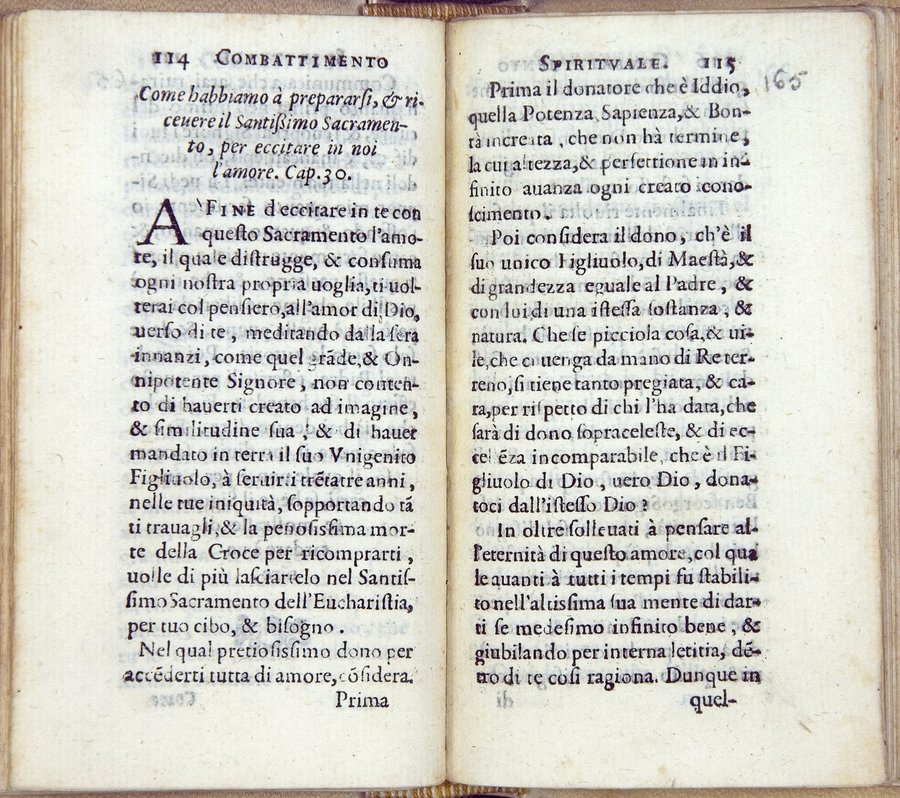 114 COMBATTIMENTO
Come habbiamo à prepararſi, & ri-
ceuere il Santißimo Sacramen-
to, per eccitare in noi
l'amore. Cap. 30.
A'FINE d'eccitare in te con
queſto Sacramento l'amo-
re, il quale diſtrugge, & conſuma
ogni noſtra propria uoglia, ti uol-
terai col penſiero, all'amor di Dio,
uerſo di te, meditando dalla ſera
innanzi, come quel grãde, & On-
nipotente Signore, non conten-
to di hauerti creato ad imagine,
& ſimilitudine ſua, & di hauer
mandato in terra il ſuo Vnigenito
Figliuolo, à ſeruirti trẽtatre anni,
nelle tue iniquità, ſopportando tã
ti trauagli, & la penoſiſſima mor-
te della Croce per ricomprarti,
uolle di più laſciartelo nel Santiſ-
ſimo Sacramento dell'Euchariſtia,
per tuo cibo, & biſogno.
Nel qual pretioſiſſimo dono per
accẽderti tutta di amore, cõſidera.
Prima
SPIRITVALE. 115
165
Prima il donatore che è Iddio,
quella Potenza Sapienza, & Bon-
tà increata, che non hà termine,
la cui altezza, & perfettione in in-
finito auanza ogni creato cono-
ſcimento.
Poi conſidera il dono, ch'è il
ſuo unico Figliuolo, di Maeſtà, &
di grandezza eguale al Padre, &
con lui, di una iſteſſa ſoſtanza, &
natura. Che ſe picciola coſa, & ui-
le, che ci uenga da mano di Re ter-
reno, ſi tiene tanto pregiata, & ca-
ra, per riſpetto di chi l'ha data, che
ſarà di dono ſopraceleſte, & di ec-
cellẽza incomparabile, che è il Fi-
gliuolo di Dio, uero Dio, dona-
toci dall'iſteſſo Dio?
In oltre ſolleuati à penſare al-
l'eternità di queſto amore, col qua
le auanti à tutti i tempi fu ſtabili-
to nell'altiſſima ſua mente di dar-
ti ſe medeſimo infinito bene, &
giubilando per interna letitia, dẽ-
tro di te coſi ragiona. Dunque in
quel-